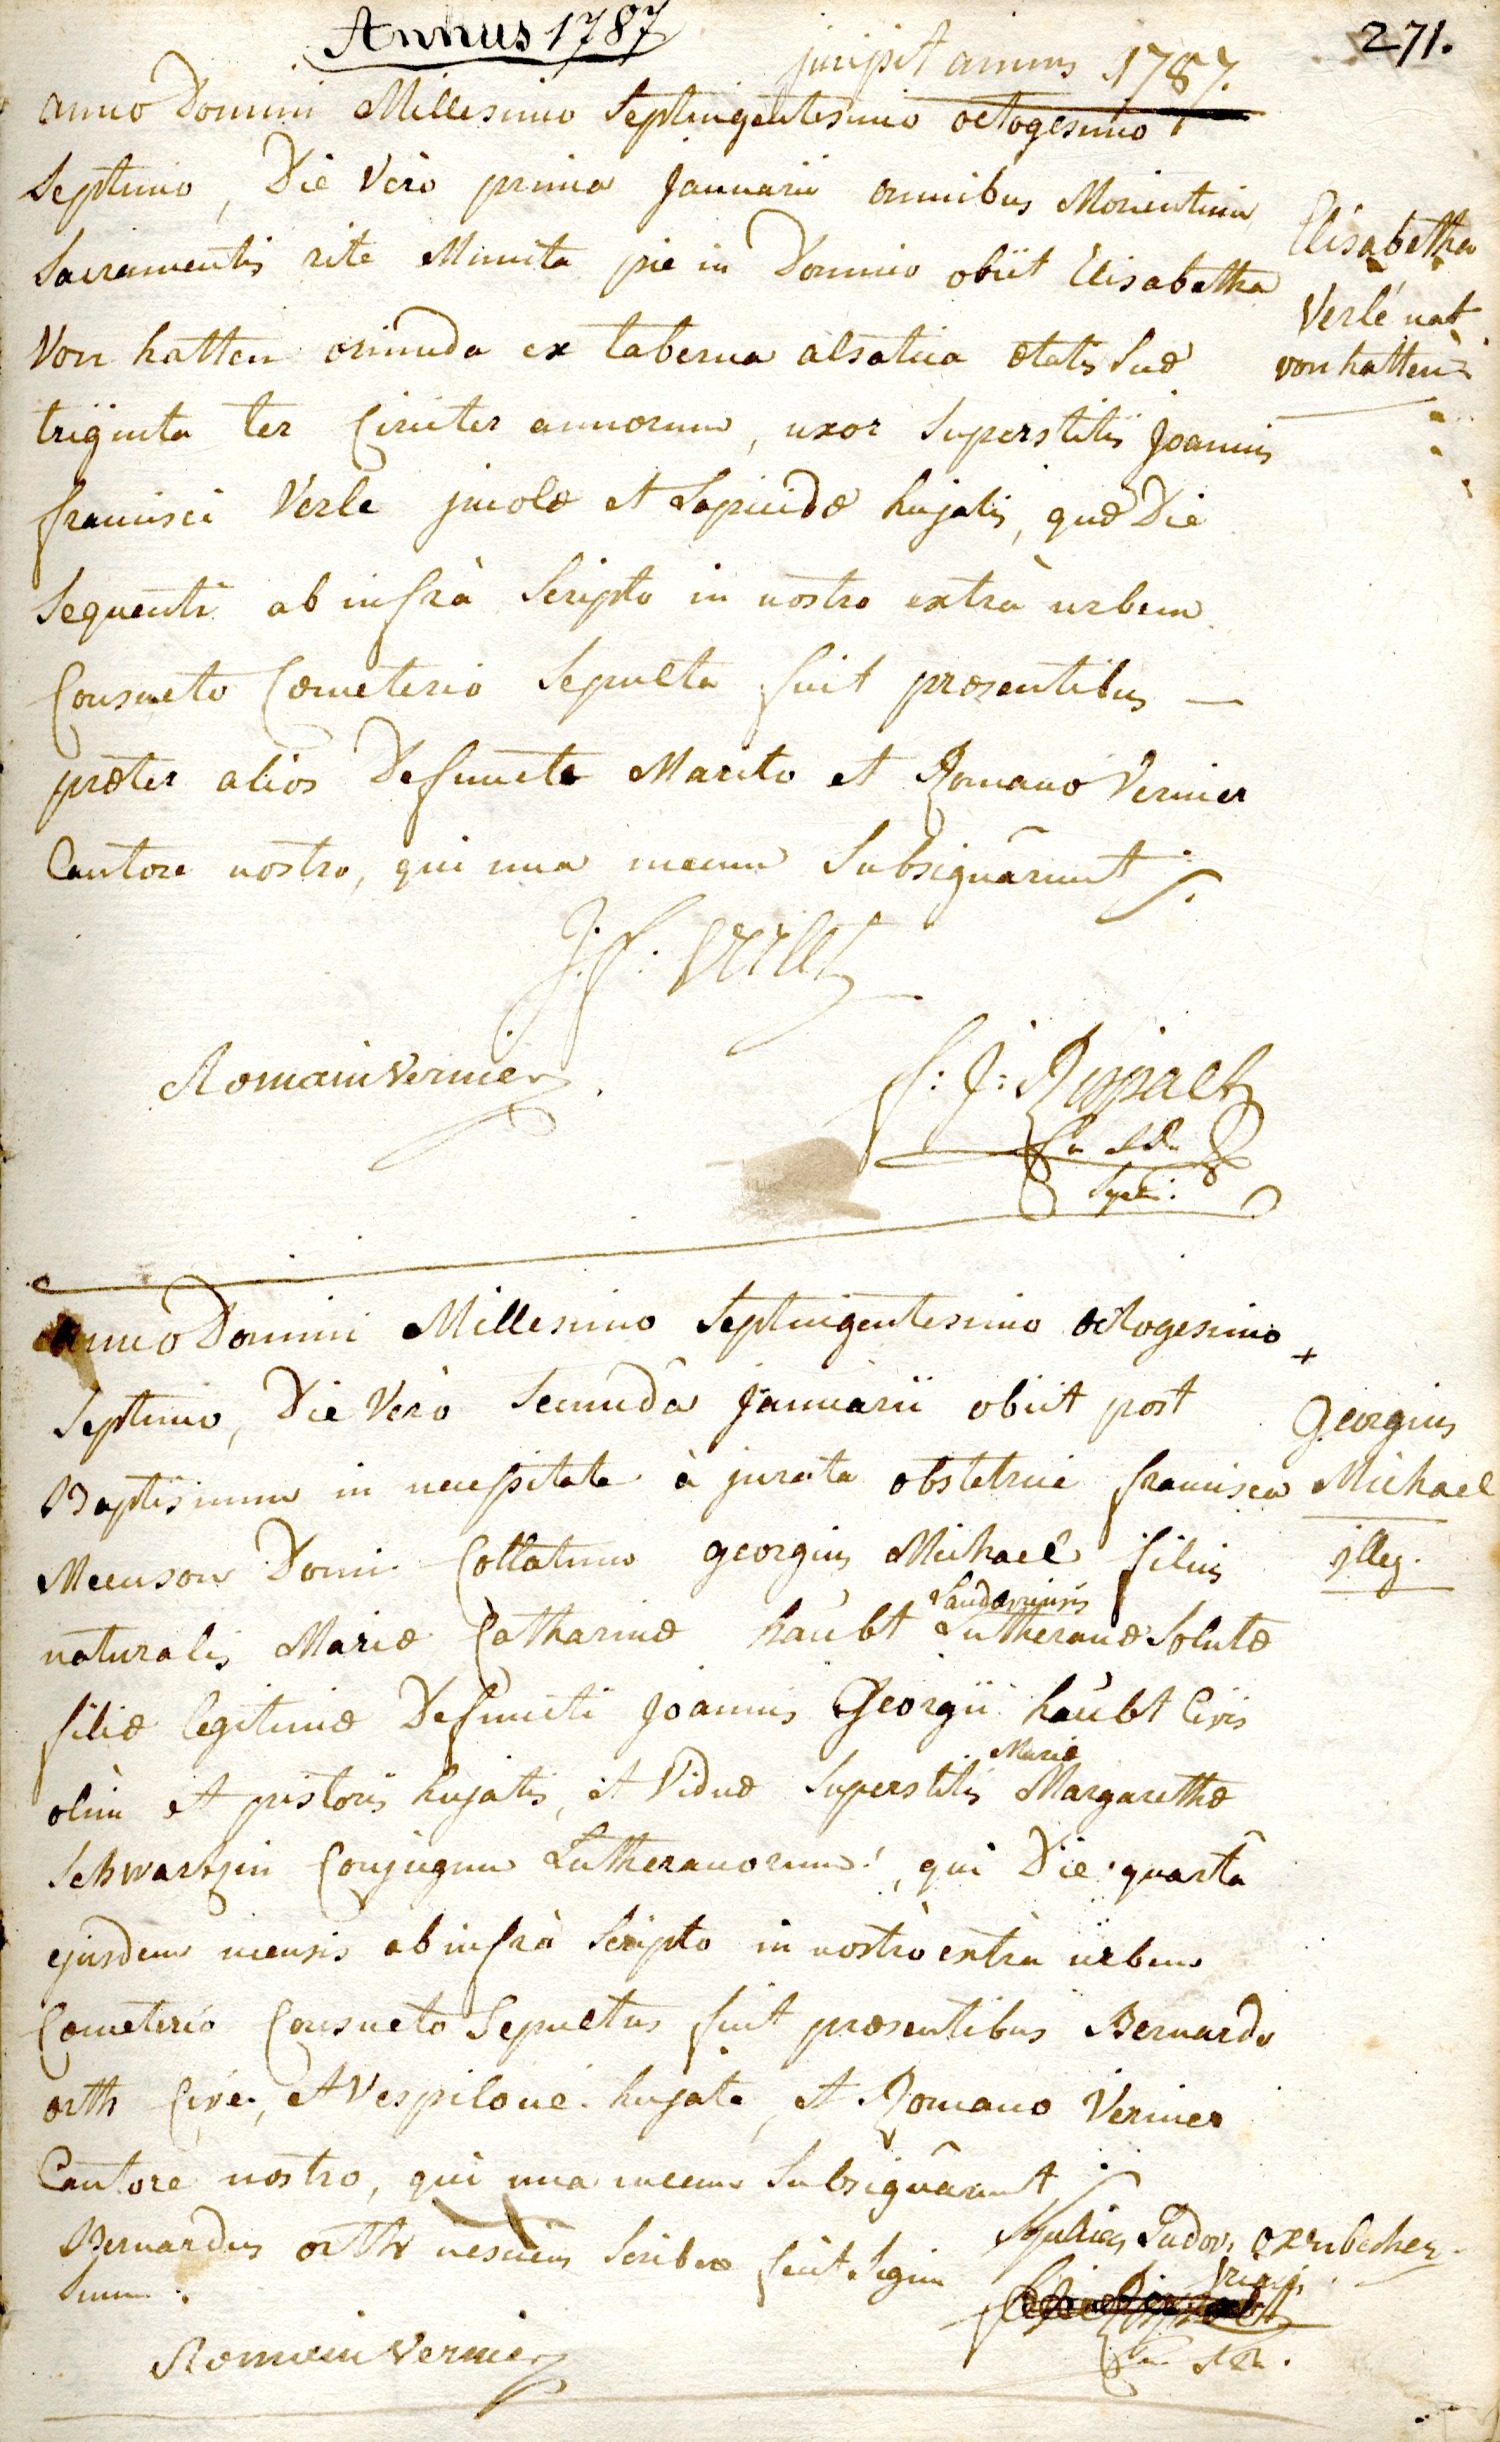 Annus 1787
271.
jncipit annus 1787.
anno Domini Millesimo Septingentesimo octogesimo
Septimo, Die Verò prima Januarii omnibus Morientium
Sacramentis rite Munita pie in Domino obiit Elisabetha
Von hatten oriunda ex taberna alsatica ætatis suæ
triginta ter Circiter annorum, uxor Superstitis Joannis
francisci Verle jncolæ et Lapicidæ hujatis, quæ Die
Sequenti ab infrà Scripto in nostro extrà urbem
Consueto Cœmeterio Sepulta fuit præsentibus —
præter alios Defunctæ Marito et Romano Vernier
Cantore nostro, qui una mecum Subsignârunt
Elisabetha
Verlé nat
von hatten
J: f:
Romain Vernier
f: J:
anno Domini Millesimo Septingentesimo octogesimo
Septimo, Die Verò Secundâ Januarii obiit post
Baptismum in necessitate à jurata obstetrice francisca
Domi Collatum georgius Michael filius
naturalis Mariæ Catharinæ haubt Landaviensis Lutheranæ Solutæ
filiæ legitimæ Defuncti Joannis Georgii haubt Civis
olim et pistoris hujatis, et Viduæ Superstitis Mariæ Margarethæ
Schwartzin Conjugum Lutheranorum, qui Die quartâ
ejusdem mensis ab infrà Scripto in nostro extrà urbem
Cœmeterio Consueto Sepultus fuit præsentibus Bernardo
orth Cive, et Vespilone hujate, et Romano Vernier
Cantore nostro, qui una mecum Subsignârunt
+
Georgius
Michael
jlleg.
Bernardus orth nesciens Scribere fecit Signum
Suum
Romain Vernier